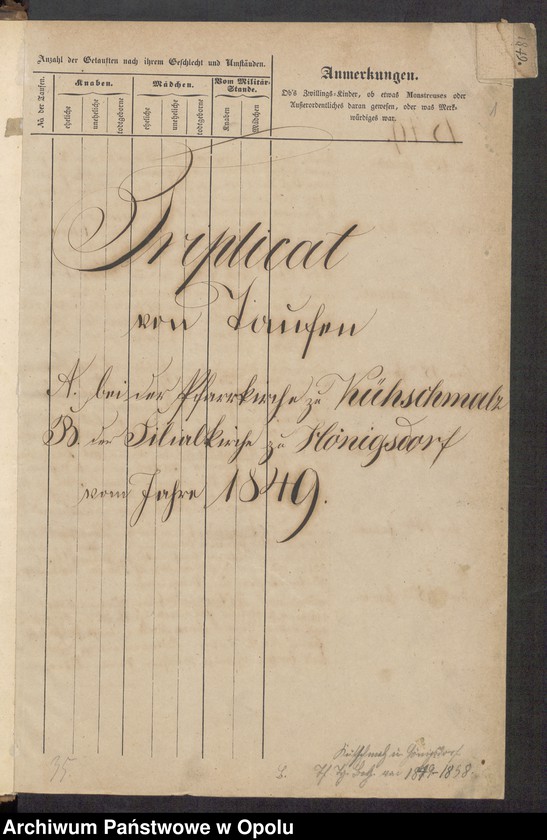 1849.
Anzahl der Getauften nach ihrem Geschlecht und Umständen.
No der Taufen.
Knaben.
Mädchen.
Vom Militär-Stande.
eheliche
uneheliche
todtgeborne
eheliche
uneheliche
todtgeborne
Knaben
Mädchen
Anmerkungen.
Ob's Zwillings-Kinder, ob etwas Monstreuses oder
Außerordentliches daran gewesen, oder was Merk-
würdiges war.
1
Triplicat
von Taufen
A. bei der Pfarrkirche zu Kühschmalz
B. der Filialkirche zu Hönigsdorf
vom Jahre 1849.
Kühschmalz u Hönigsdorf
1849-1858
35.
Archiwum Państwowe w Opolu